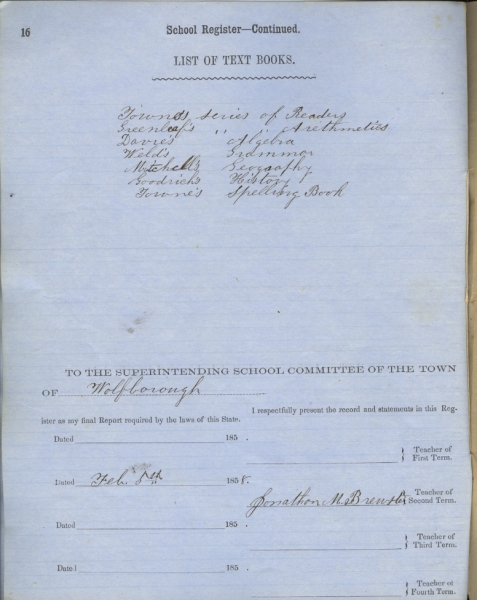 16
School Register—Continued.
LIST OF TEXT BOOKS.
Town's series of Readers
Greenleaf's " " Arethmetics
Davie's Algebra
Weld's Grammar
Mitchell's Geography
Goodrich's History
Towne's Spelling Book
TO THE SUPERINTENDING SCHOOL COMMITTEE OF THE TOWN
OF Wolfborough
I respectfully present the record and statements in this Reg-
ister as my final Report required by the laws of this State.
Dated 185 .
Teacher of
First Term.
Dated Feb. 8th 1858.
Jonathan M. Brewster
Teacher of
Second Term.
Dated 185 .
Teacher of
Third Tarm.
Dated 185 .
Teacher of
Fourth Term.